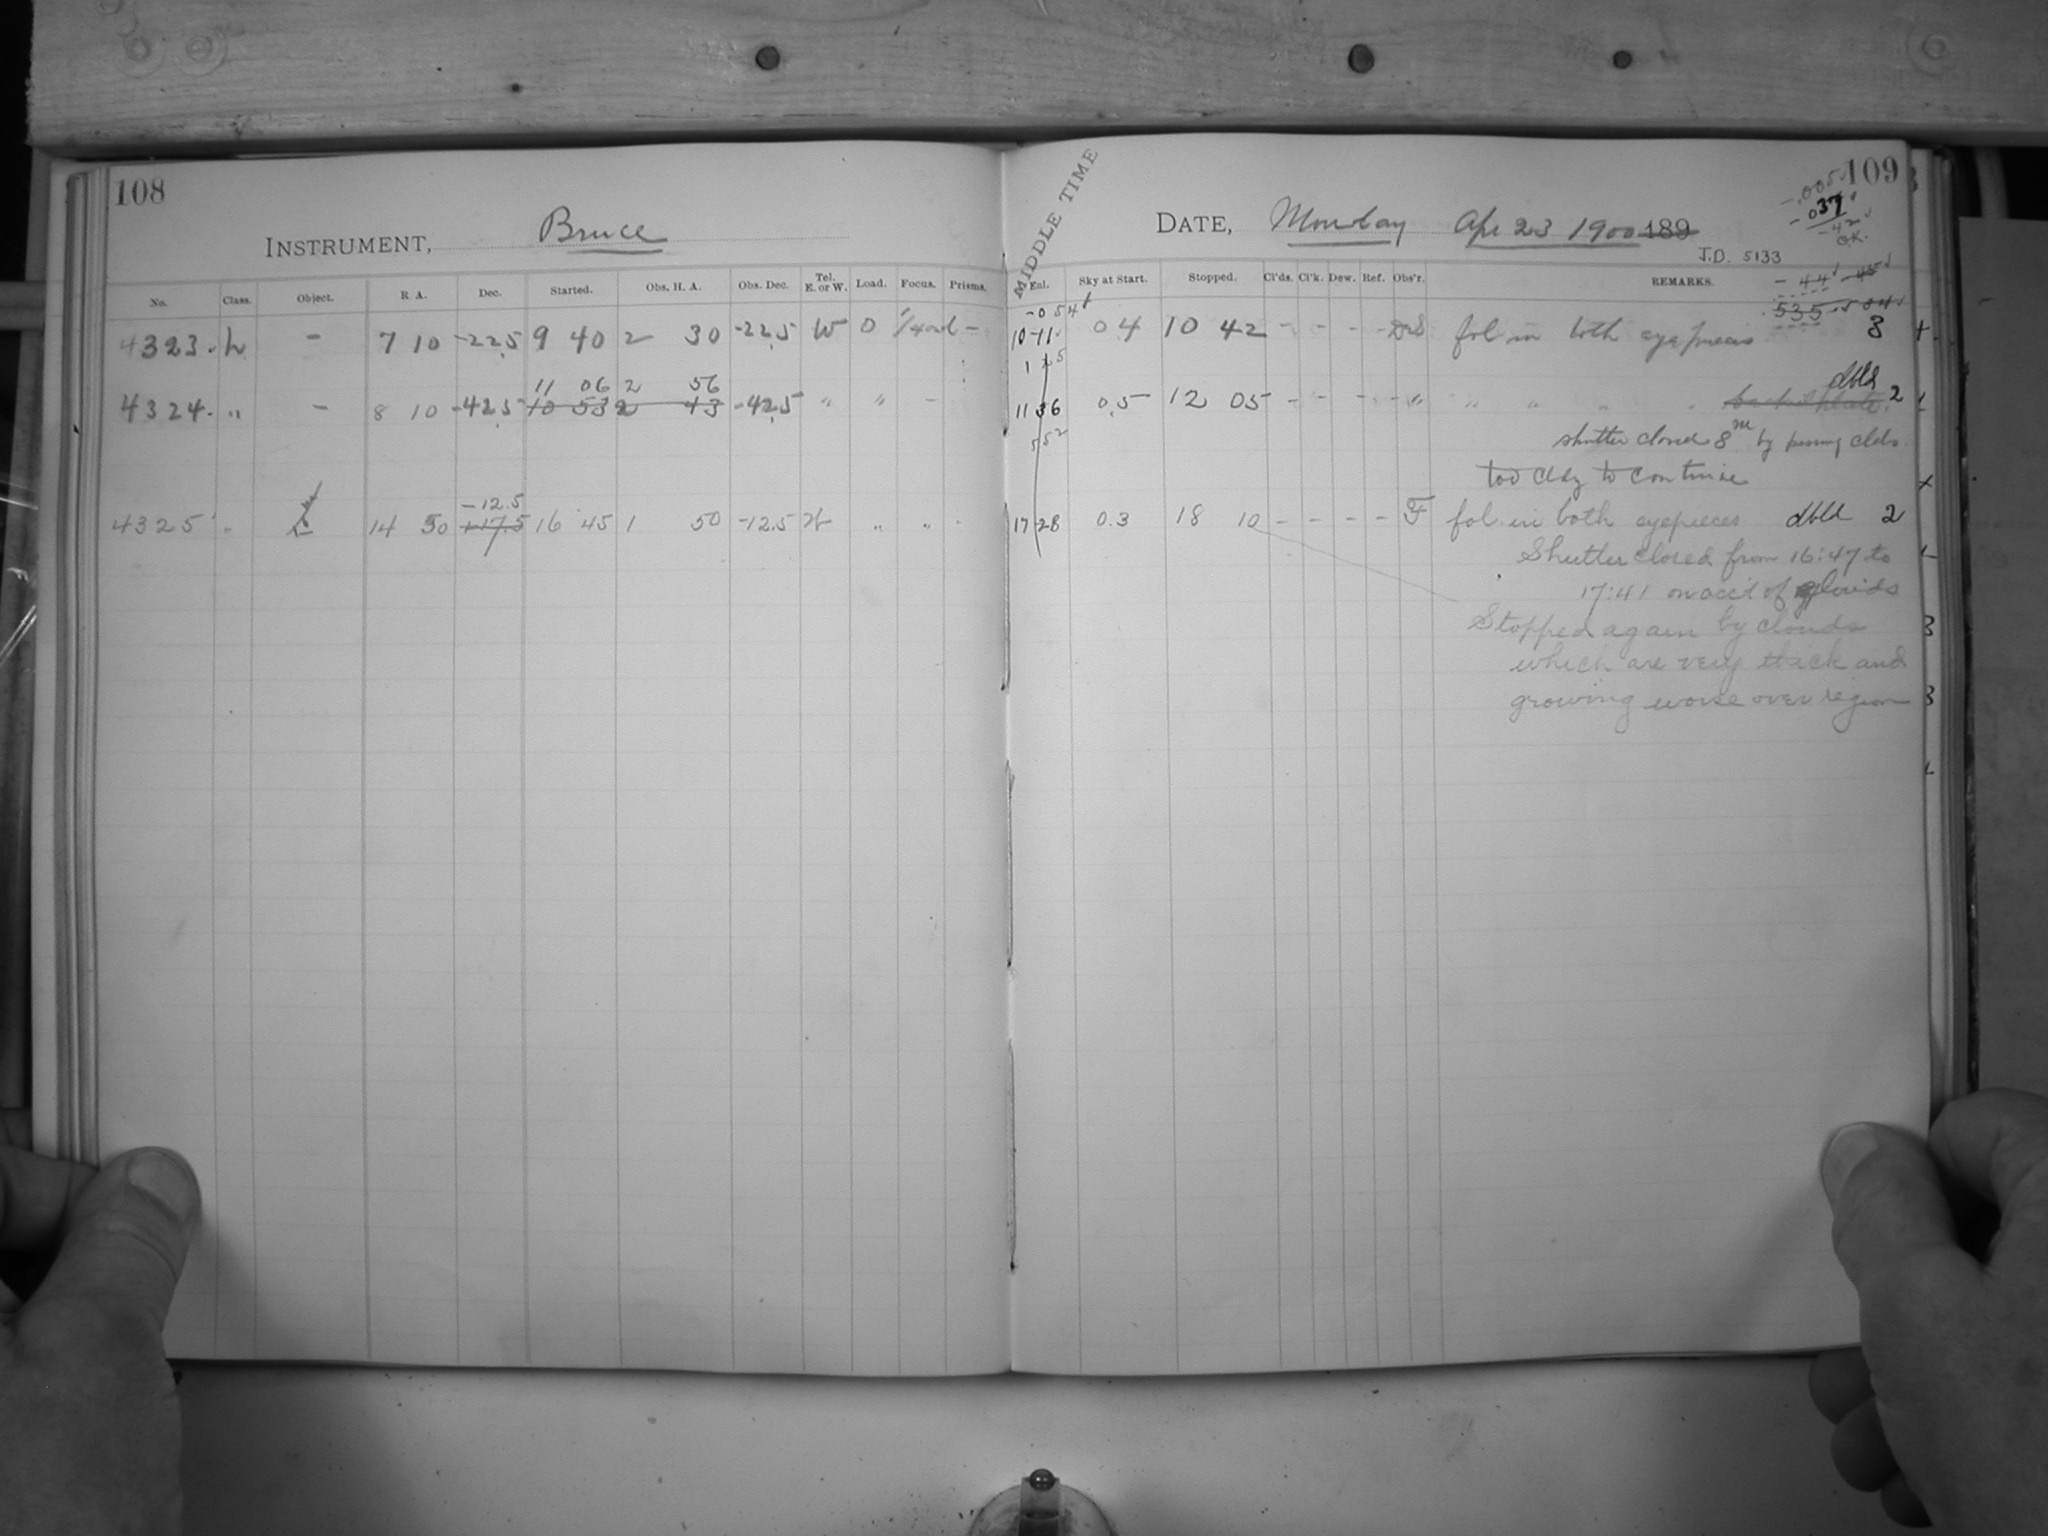 108
INSTRUMENT, Bruce
No. Class. Object. R A. Dec. Started. Obs. H. A. Obs. Dec. Tel. E. or W. Load. Focus. Prisms.
4323 L - 7 10 -22.5 9 40 2 30 -22.5 W 0 -
11 06 2 56
4324 " - 8 10 -42.5 10 53 2 43 -42.5 " " -
-12.5
4325 " 14 50 +17.5 16 45 1 50 -12.5 W " " -
109
MIDDLE TIME
DATE, Monday Apr 23 1900 189
-.005
-037
-42
O.K.
J.D. 5133
Enl. Sky at Start. Stopped. Cl'ds. Cl'k. Dew. Ref. Obs'r. REMARKS.
-44 -45
535
-054
10 11 0 4 10 42 - - - - fol in both eyepieces 3
dbld
11 36 0.5 12 05 - - - - " " " " " 2
552
shutter closed 8m by passing clds.
too cldy to continue
17 28 0.3 18 10 - - - - F fol. in both eyepieces dbld 2
Shutter closed from 16:47 to
17:41 on acc't of clouds
Stopped again by clouds
which are very thick and
growing worse over region